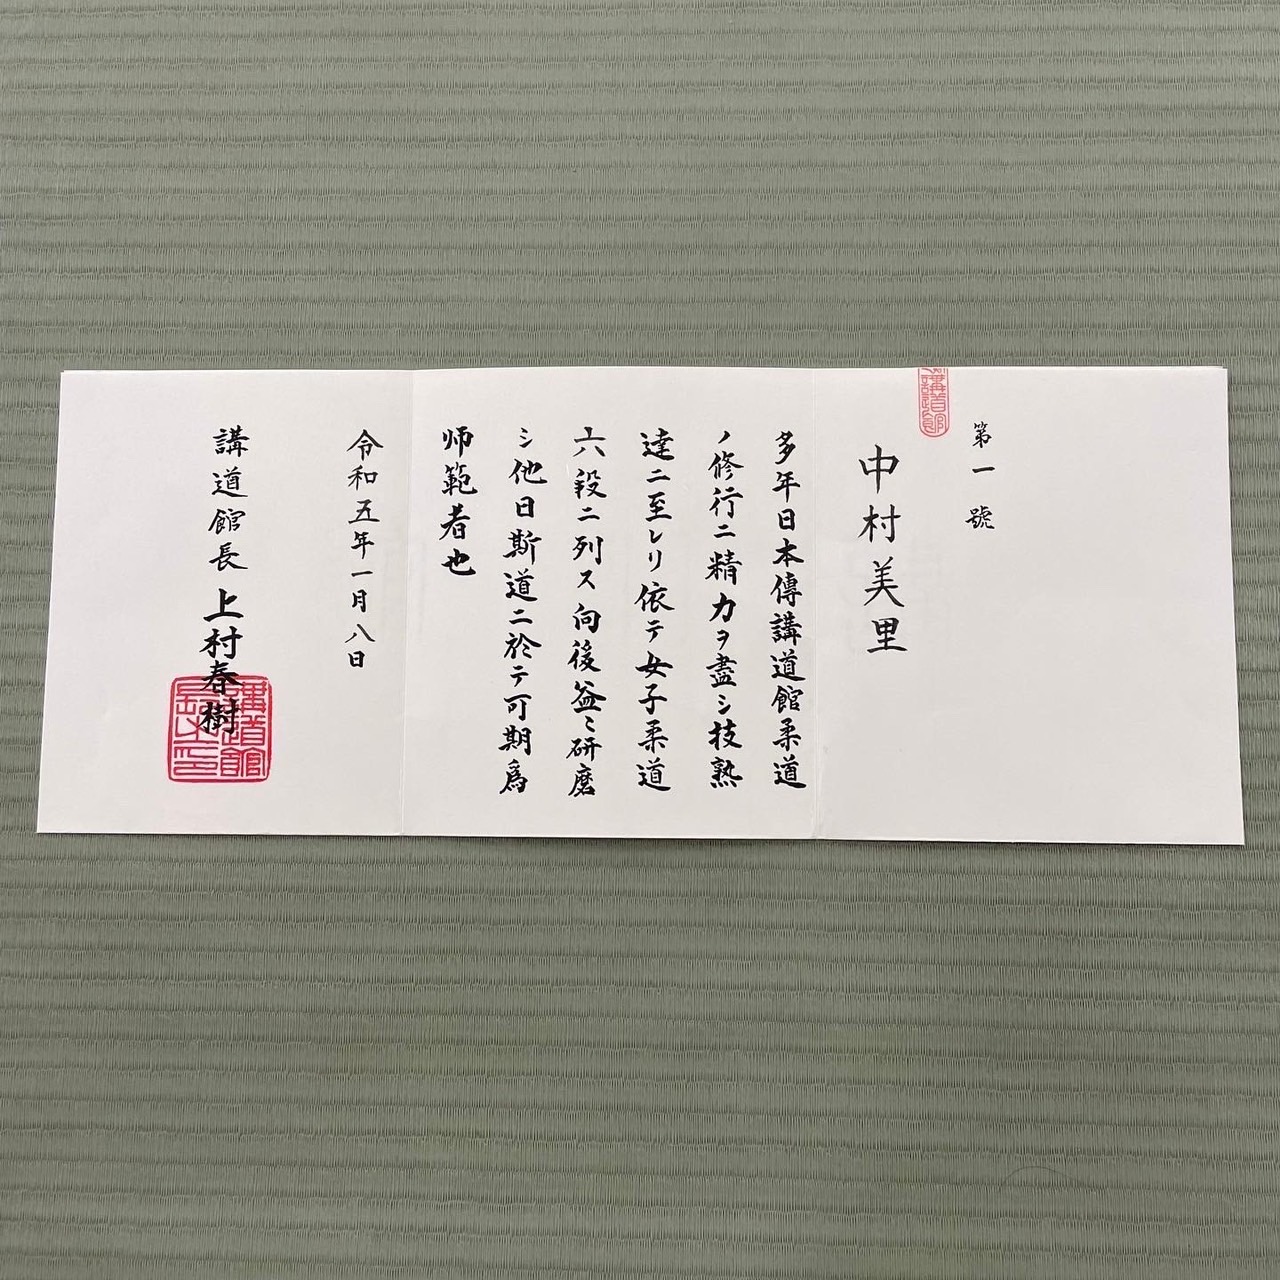 第一號
中村美里
多年日本傳講道館柔道
ノ修行ニ精力ヲ盡シ技熟
達ニ至レリ依テ女子柔道
六段ニ列ス向後益〻研磨
シ他日斯道ニ於テ可期為
师範者也
令和五年一月八日
講道館長 上村春樹
講道館長之印